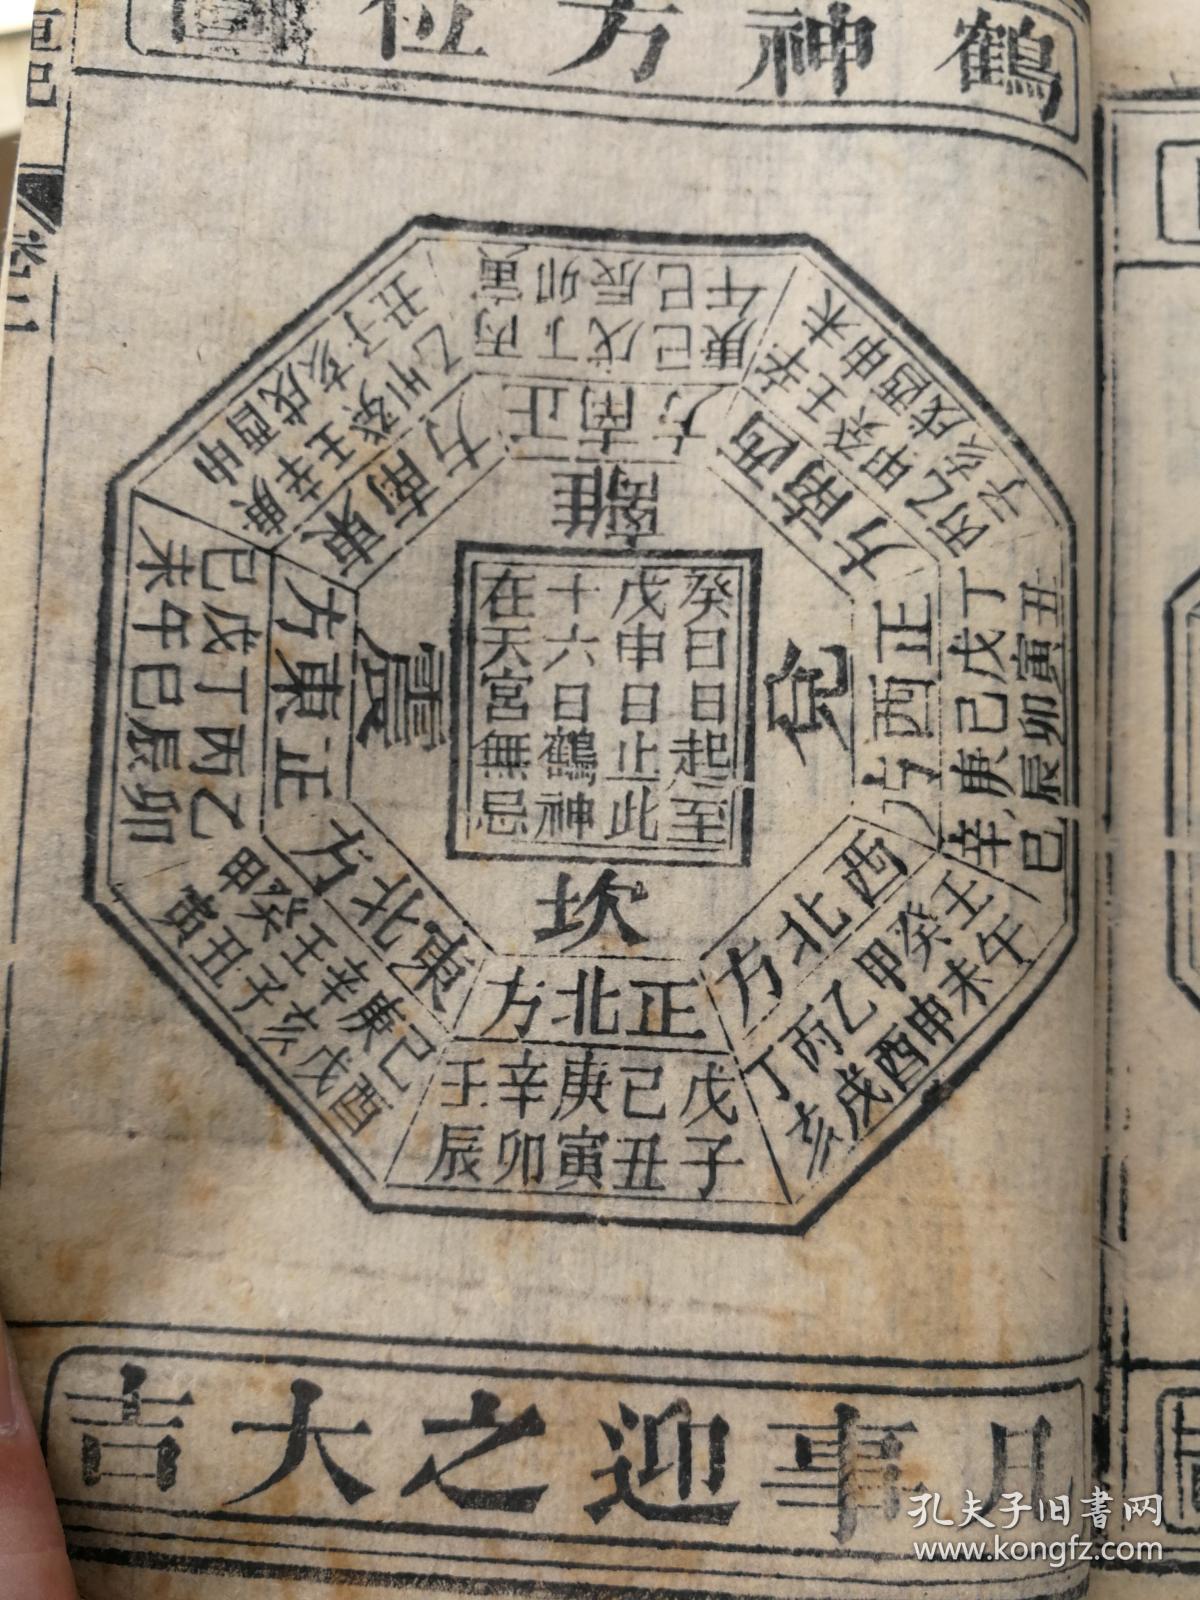 鶴神方位圖
癸巳日起至
戊申日止此
十六日鶴神
在天宮無忌
離
正南方
丙丁戊己庚
寅卯辰巳午
西南方
辛壬癸甲乙丙
未申酉戌亥子
兌
正西方
丁戊己庚辛
丑寅卯辰巳
西北方
壬癸甲乙丙丁
午未申酉戌亥
坎
正北方
戊己庚辛壬
子丑寅卯辰
東北方
己庚辛壬癸甲
酉戌亥子丑寅
震
正東方
乙丙丁戊己
卯辰巳午未
東南方
庚辛壬癸甲乙
申酉戌亥子丑
凡事迎之大吉
孔夫子旧書网
www.kongfz.com